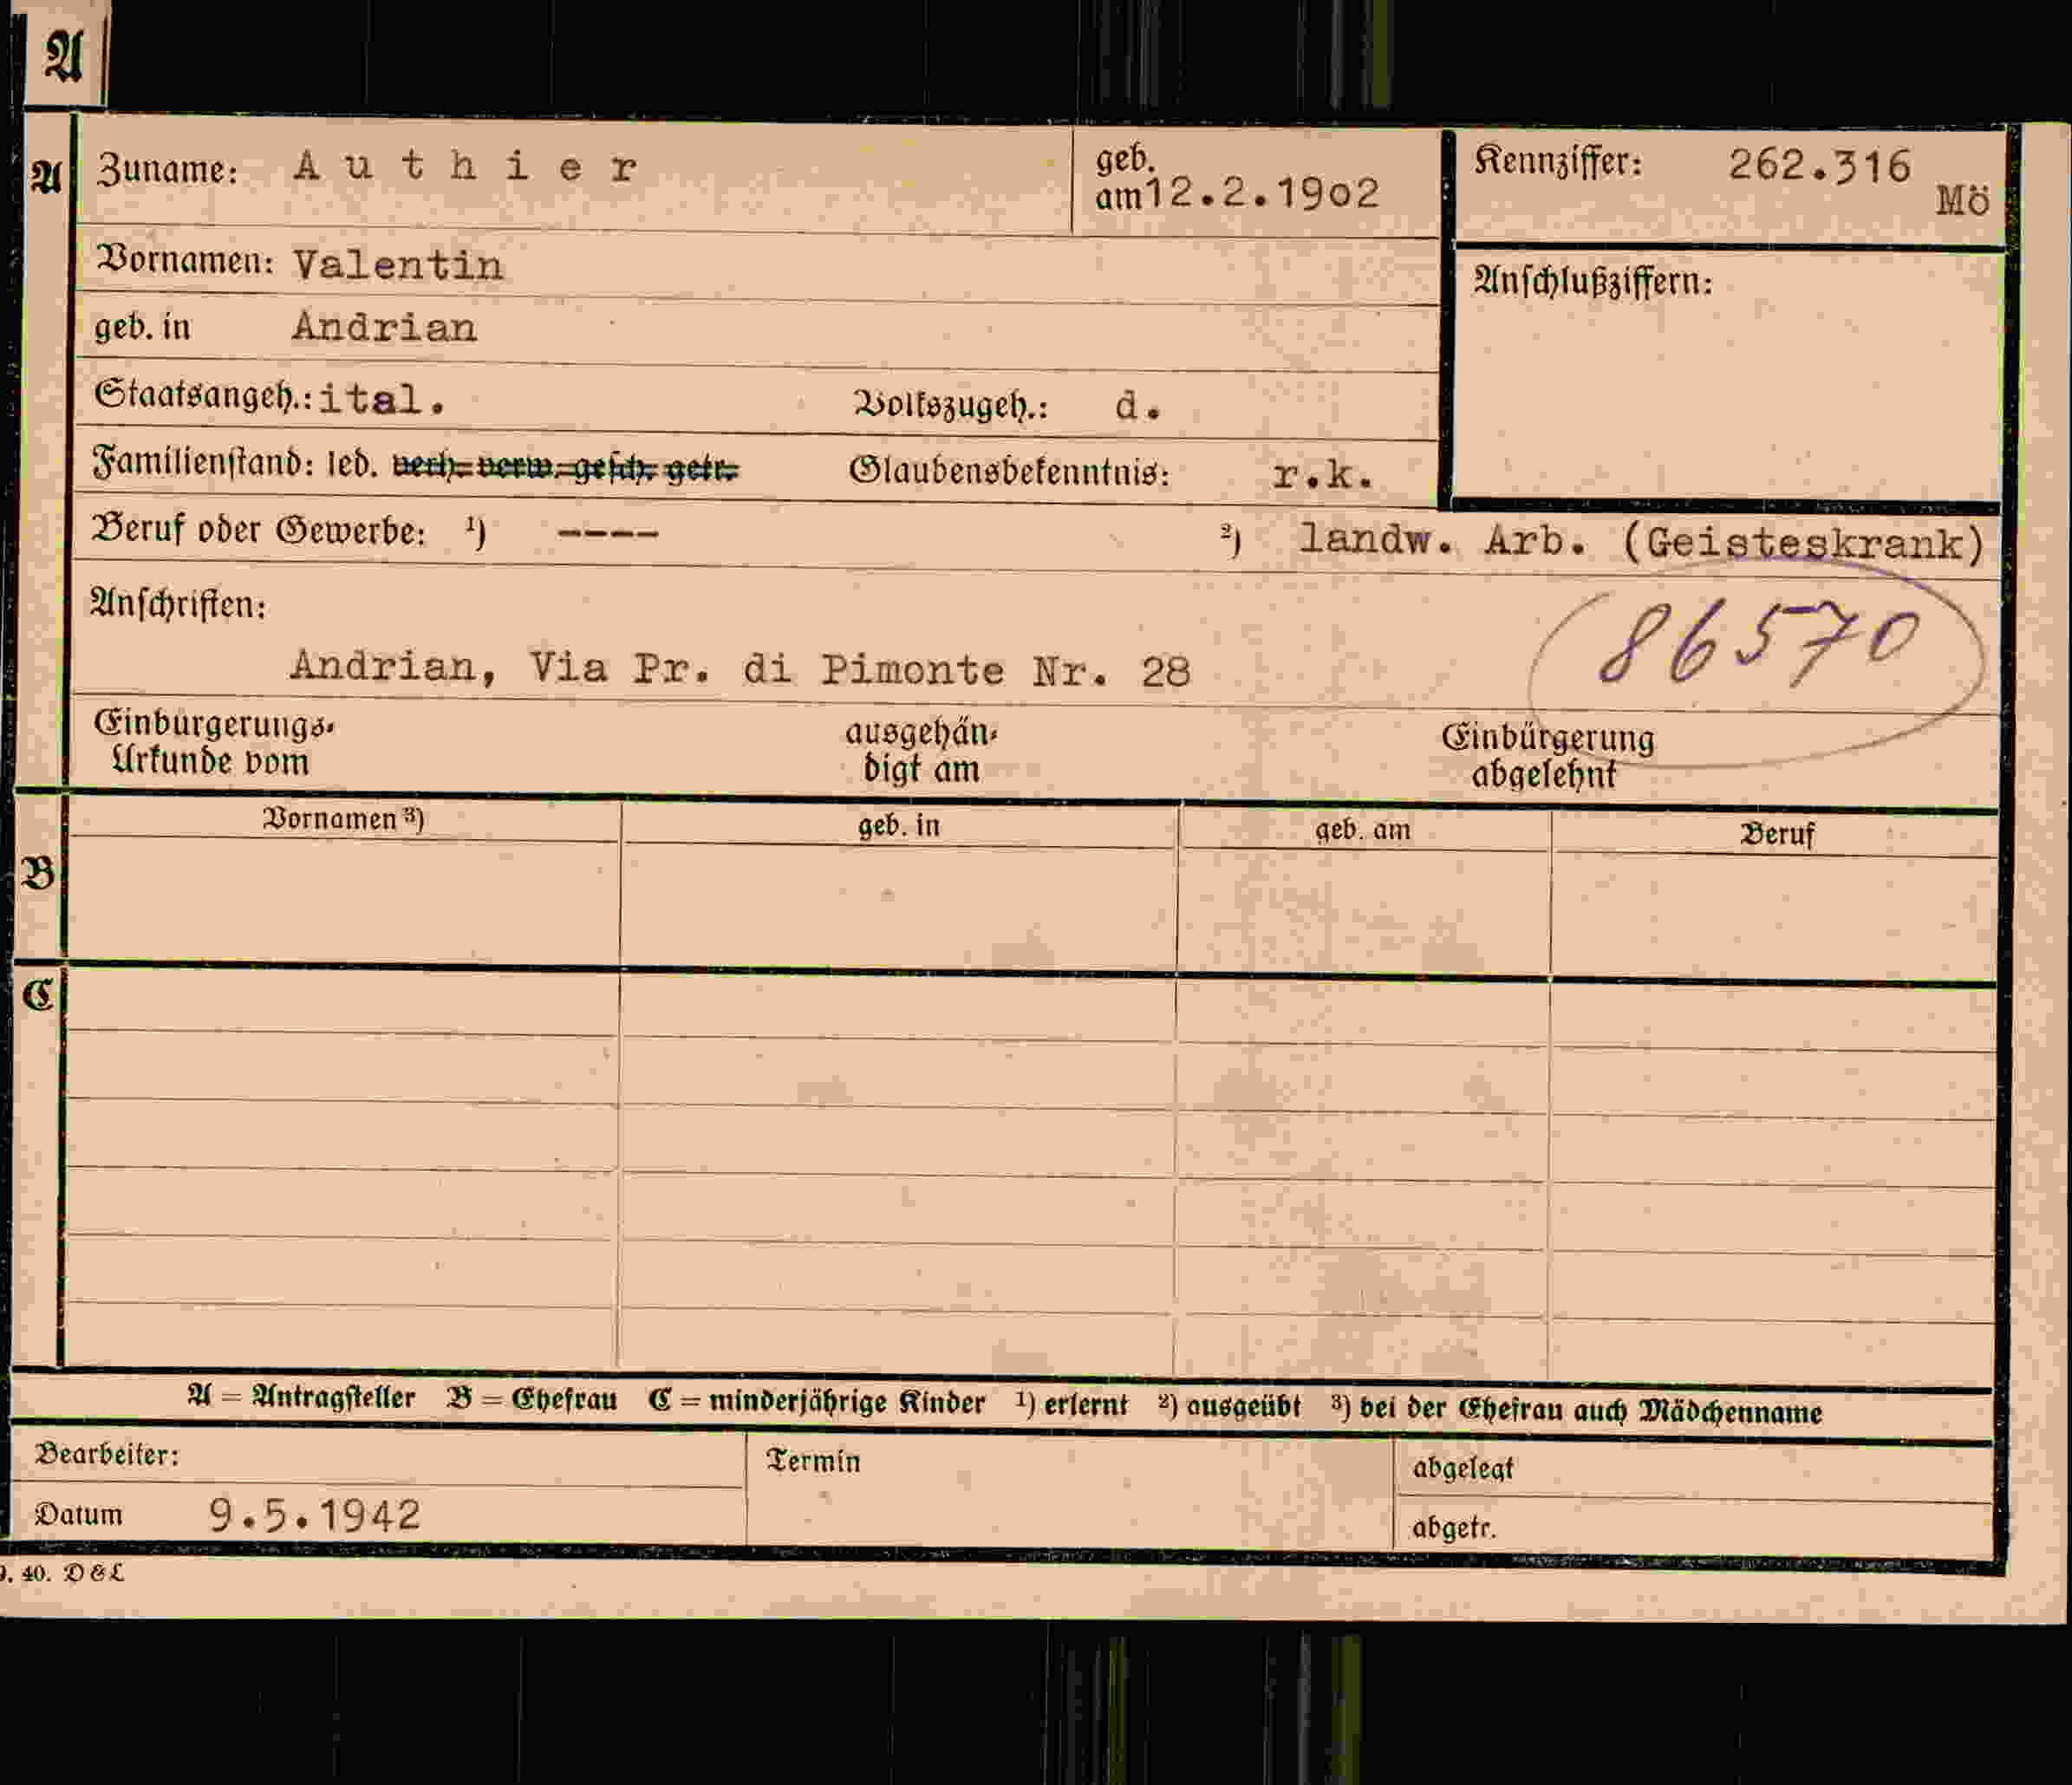 A
A Zuname: Authier geb. am 12.2.1902 Kennziffer: 262.316 Mö
Vornamen: Valentin Anschlußziffern:
geb. in Andrian
Staatsangeh.: ital. Volkszugeh.: d.
Familienstand: led. verh. verw. gesch. getr. Glaubensbekenntnis: r.k.
Beruf oder Gewerbe: ¹) ---- ²) landw. Arb. (Geisteskrank)
Anschriften: 86570
Andrian, Via Pr. di Pimonte Nr. 28
Einbürgerungs- ausgehän- Einbürgerung
Urkunde vom digt am abgelehnt
Vornamen ³) geb. in geb. am Beruf
B
C
A = Antragsteller B = Ehefrau C = minderjährige Kinder ¹) erlernt ²) ausgeübt ³) bei der Ehefrau auch Mädchenname
Bearbeiter: Termin abgelegt
Datum 9.5.1942 abgetr.
9. 40. D & L